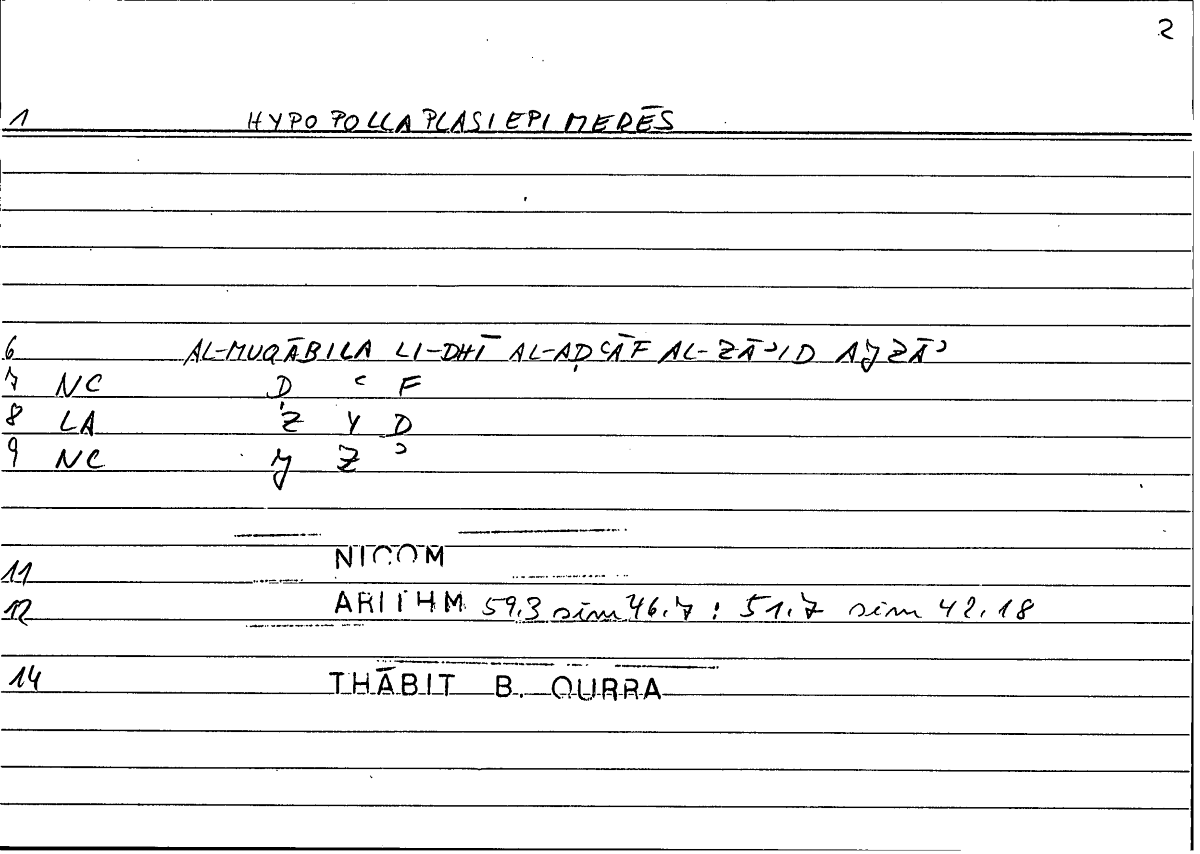 2
1 HYPOPOLLAPLASIEPIMERĒS
6 AL-MUQĀBILA LI-DHĪ AL-AḌʿĀF AL-ZĀʾID AJZĀʾ
7 NC Ḍ ʿ F
8 LA Z Y D
9 NC J Z ʾ
11 NICOM
12 ARITHM 59.3 sim 46.7 : 51.7 sim 42.18
14 THĀBIT B. QURRA